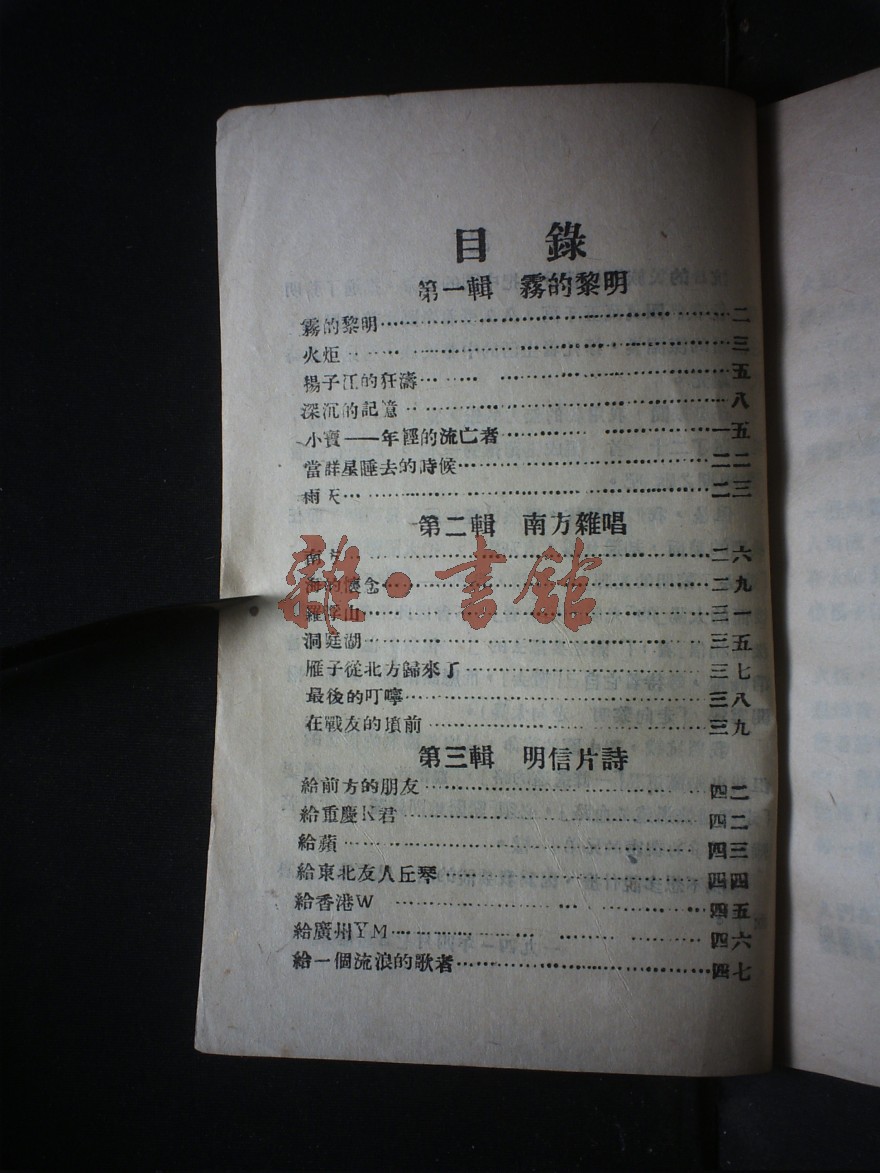 目錄
第一輯 霧的黎明
霧的黎明……二
火炬……三
揚子江的狂濤……五
深沉的記憶……八
小寶——年輕的流亡者……一五
當群星睡去的時候……二二
雨天……二三
第二輯 南方雜唱
南方……二六
海的懷念……二九
羅浮山……三一
洞庭湖……三五
雁子從北方歸來了……三七
最後的叮嚀……三八
在戰友的墳前……三九
第三輯 明信片詩
給前方的朋友……四二
給重慶K君……四二
給蘋……四三
給東北友人丘琴……四四
給香港W……四五
給廣州YM……四六
給一個流浪的歌者……四七
雜·書館